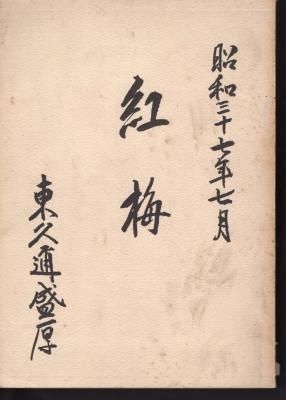 昭和三十七年七月
紅梅
東久邇盛厚